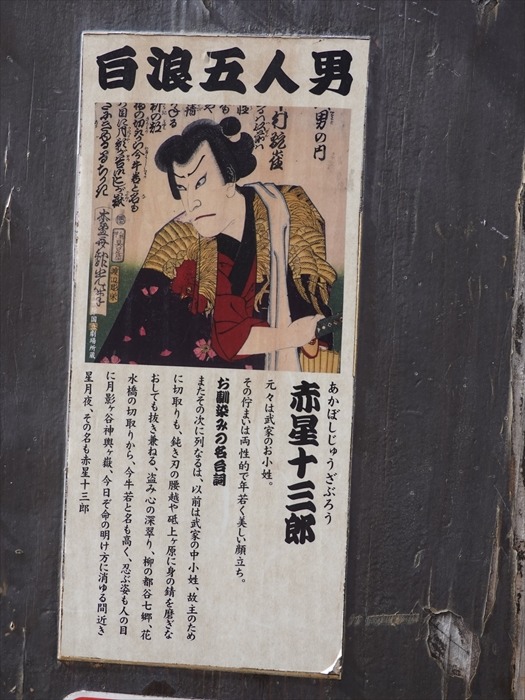 白浪五人男
男の内
国立劇場所蔵
あかぼしじゅうざぶろう
赤星十三郎
元々は武家のお小姓。
その佇まいは両性的で年若く美しい顔立ち。
お馴染みの名台詞
またその次に列なるは、以前は武家の中小姓、故主のため
に切取りも、鈍き刃の腰越や砥上ヶ原に身の錆を磨ぎな
おしても抜き兼ねる、盗み心の深翠り、柳の都谷七郷、花
水橋の切取りから、今牛若と名も高く、忍ぶ姿も人の目
に月影ヶ谷神輿ヶ嶽、今日ぞ命の明け方に消ゆる間近き
星月夜、その名も赤星十三郎